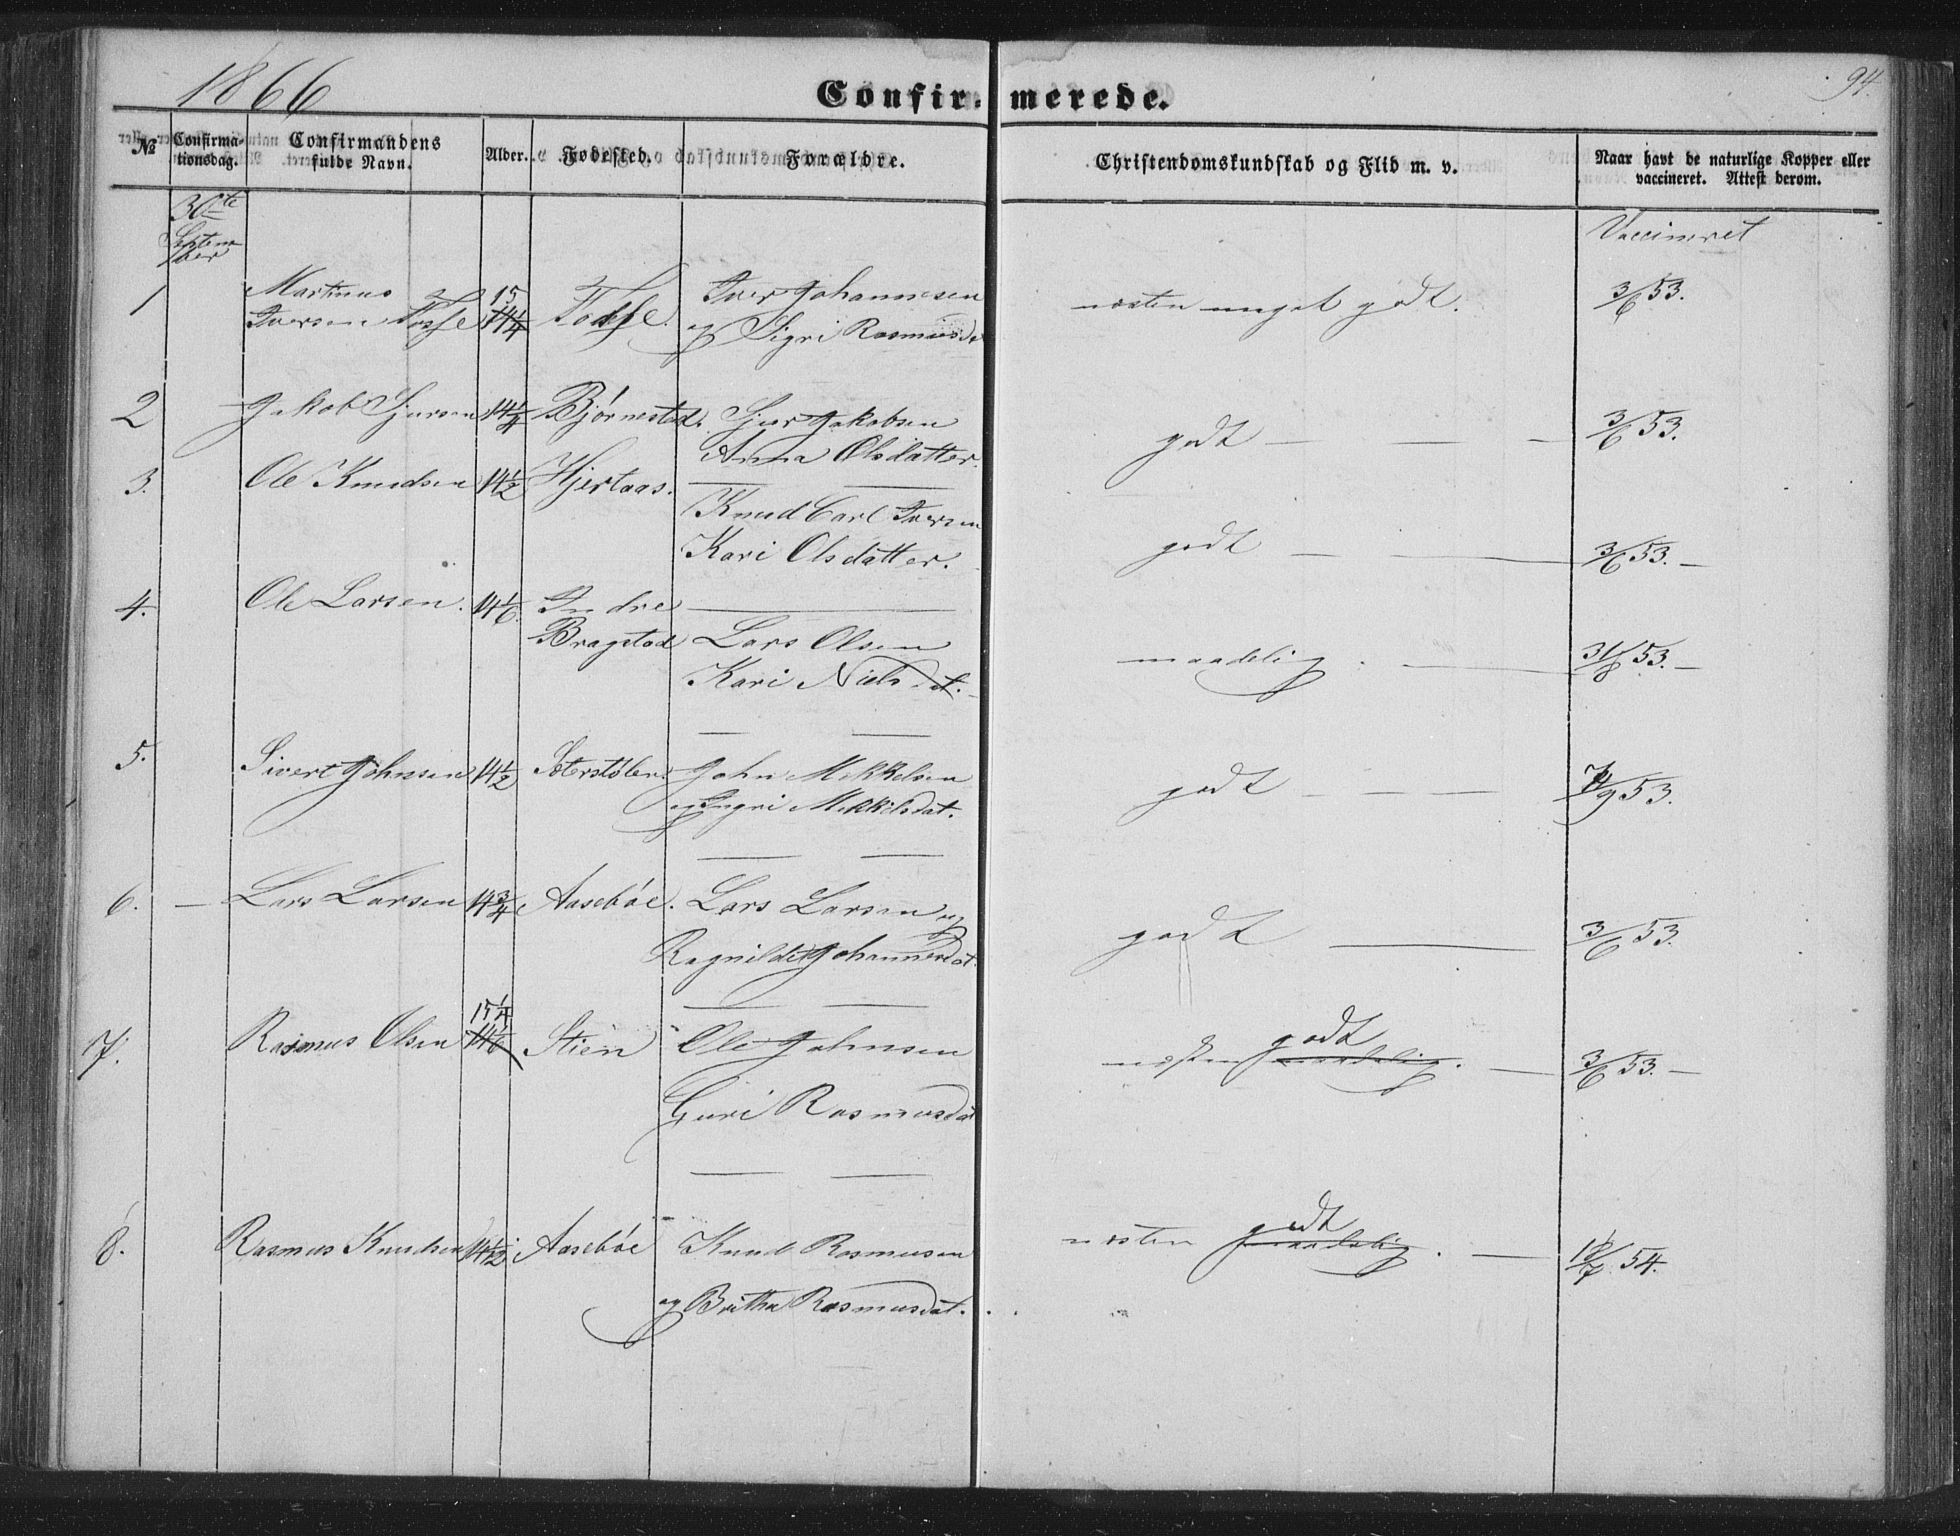 1866
Confir- merede.
94.
№
Confirma-
tionsdag.
Confirmandens
fulde Navn.
Alder.
Fødested.
Forældre.
Christendomskundskab og Flid m. v.
Naar havt de naturlige Kopper eller
vaccineret. Attest derom.
30te
Septem-
ber
Vaccineret
1 Martinus 15 Fosse. Iver Johannesen næsten meget godt. 3/6 53.
Iversen Fosse 14 1/4 og Sigri Rasmusd.
2 Jakob Sjursen 14 1/4 Bjørnestad. Sjur Jakobsen godt — — — 3/6 53.
Anna Olsdatter.
3. Ole Knudsen 14 1/2 Hjertaas. Knud Carl Iversen godt — — 3/6 53. —
Kari Olsdatter.
4. Ole Larsen. 14 1/6. Indre
Bragstad Lars Olsen maadelig. — 31/8 53. —
Kari Nielsdt.
5. Sivert Johnsen 14 1/2 John Mikkelsen godt — — — /9 53.
og Ingri Mikkelsdat.
6. — Lars Larsen 14 3/4 Aasebøe. Lars Larsen og godt — 3/6 53.
Ragnilde Johannesdat
15 1/4
7. Rasmus Olsen 14 1/6 Stien Ole Johnsen næsten maadelig. godt — 3/6 53. —
Guri Rasmusdat
8. Rasmus Knudsen 14 1/2 Aasebøe Knud Rasmusen næsten maadelig. godt — 18/7 54.
og Britha Rasmusdat.